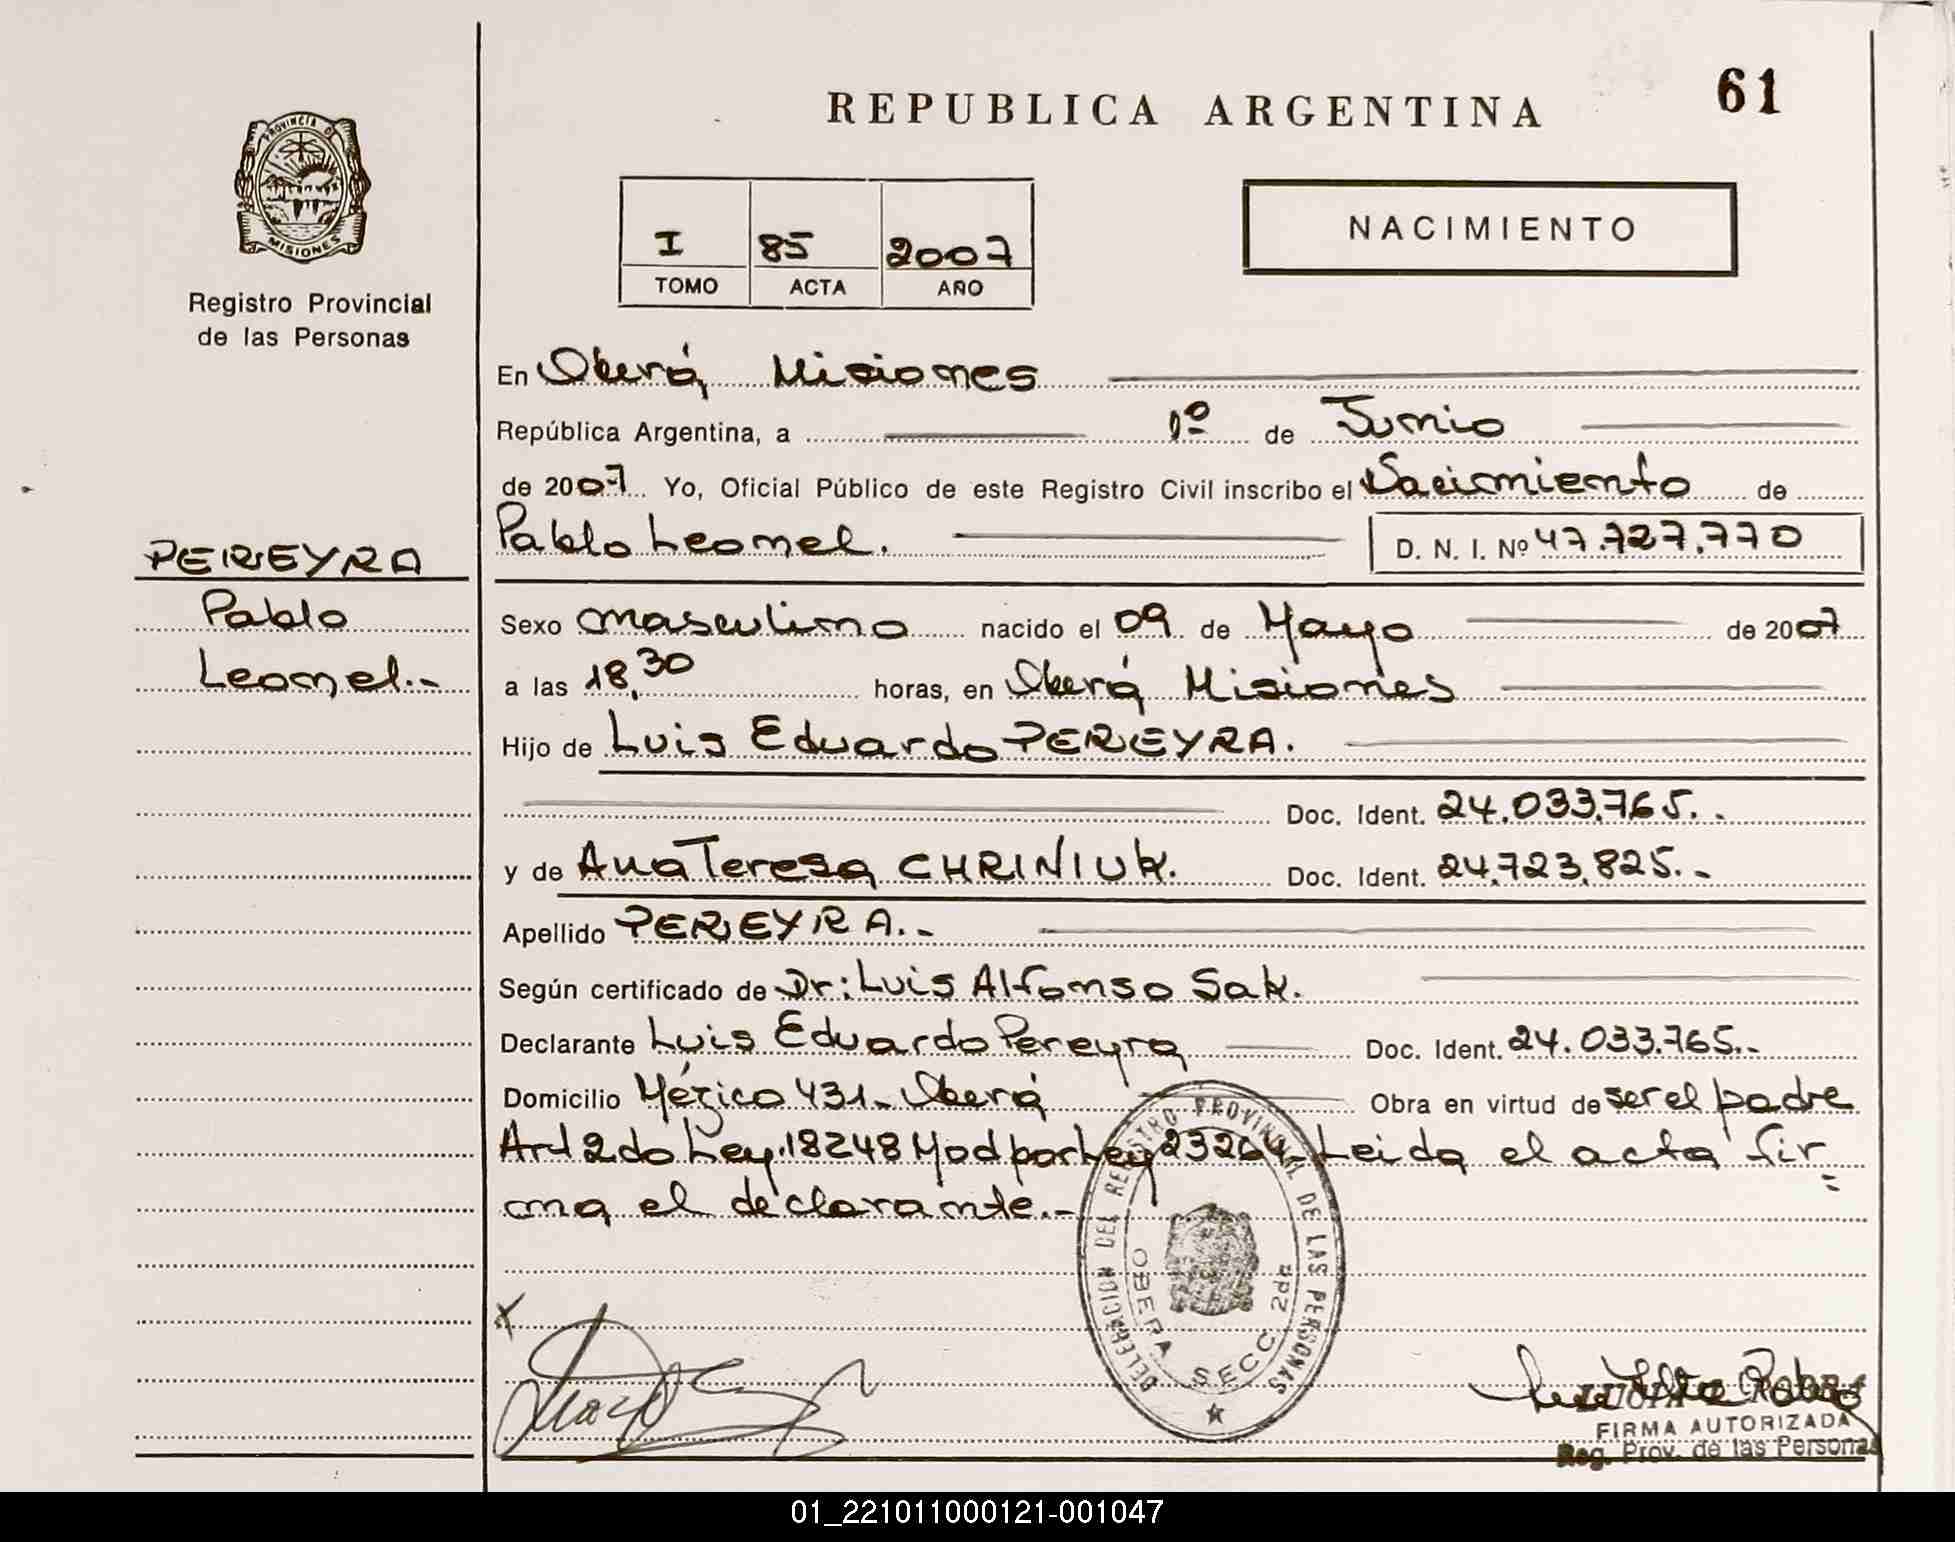 REPUBLICA ARGENTINA
61
PROVINCIA DE
MISIONES
Registro Provincial
de las Personas
I 85 2007
TOMO ACTA AÑO
NACIMIENTO
En Oberá Misiones
República Argentina, a 1º de Junio
de 2007 Yo, Oficial Público de este Registro Civil inscribo el Nacimiento de
Pablo Leonel. D. N. I. Nº 47.727.770
PEREYRA
Pablo
Leonel.-
Sexo masculino nacido el 09 de Mayo de 2007
a las 18,30 horas, en Oberá Misiones
Hijo de Luis Eduardo PEREYRA.
Doc. Ident. 24.033.765.-
y de Ana Teresa CHRINIUK. Doc. Ident. 24.723.825.-
Apellido PEREYRA.-
Según certificado de Dr: Luis Alfonso Sak.
Declarante Luis Eduardo Pereyra Doc. Ident. 24.033.765.-
Domicilio México 431- Oberá Obra en virtud de ser el padre
Art 2do Ley 18248 Mod por Ley 23264- Leida el acta fir=
ma el declarante.-
DELEGACION DEL REGISTRO PROVINCIAL DE LAS PERSONAS
OBERA SECC 2da
FIRMA AUTORIZADA
Reg. Prov. de las Personas
01_221011000121-001047